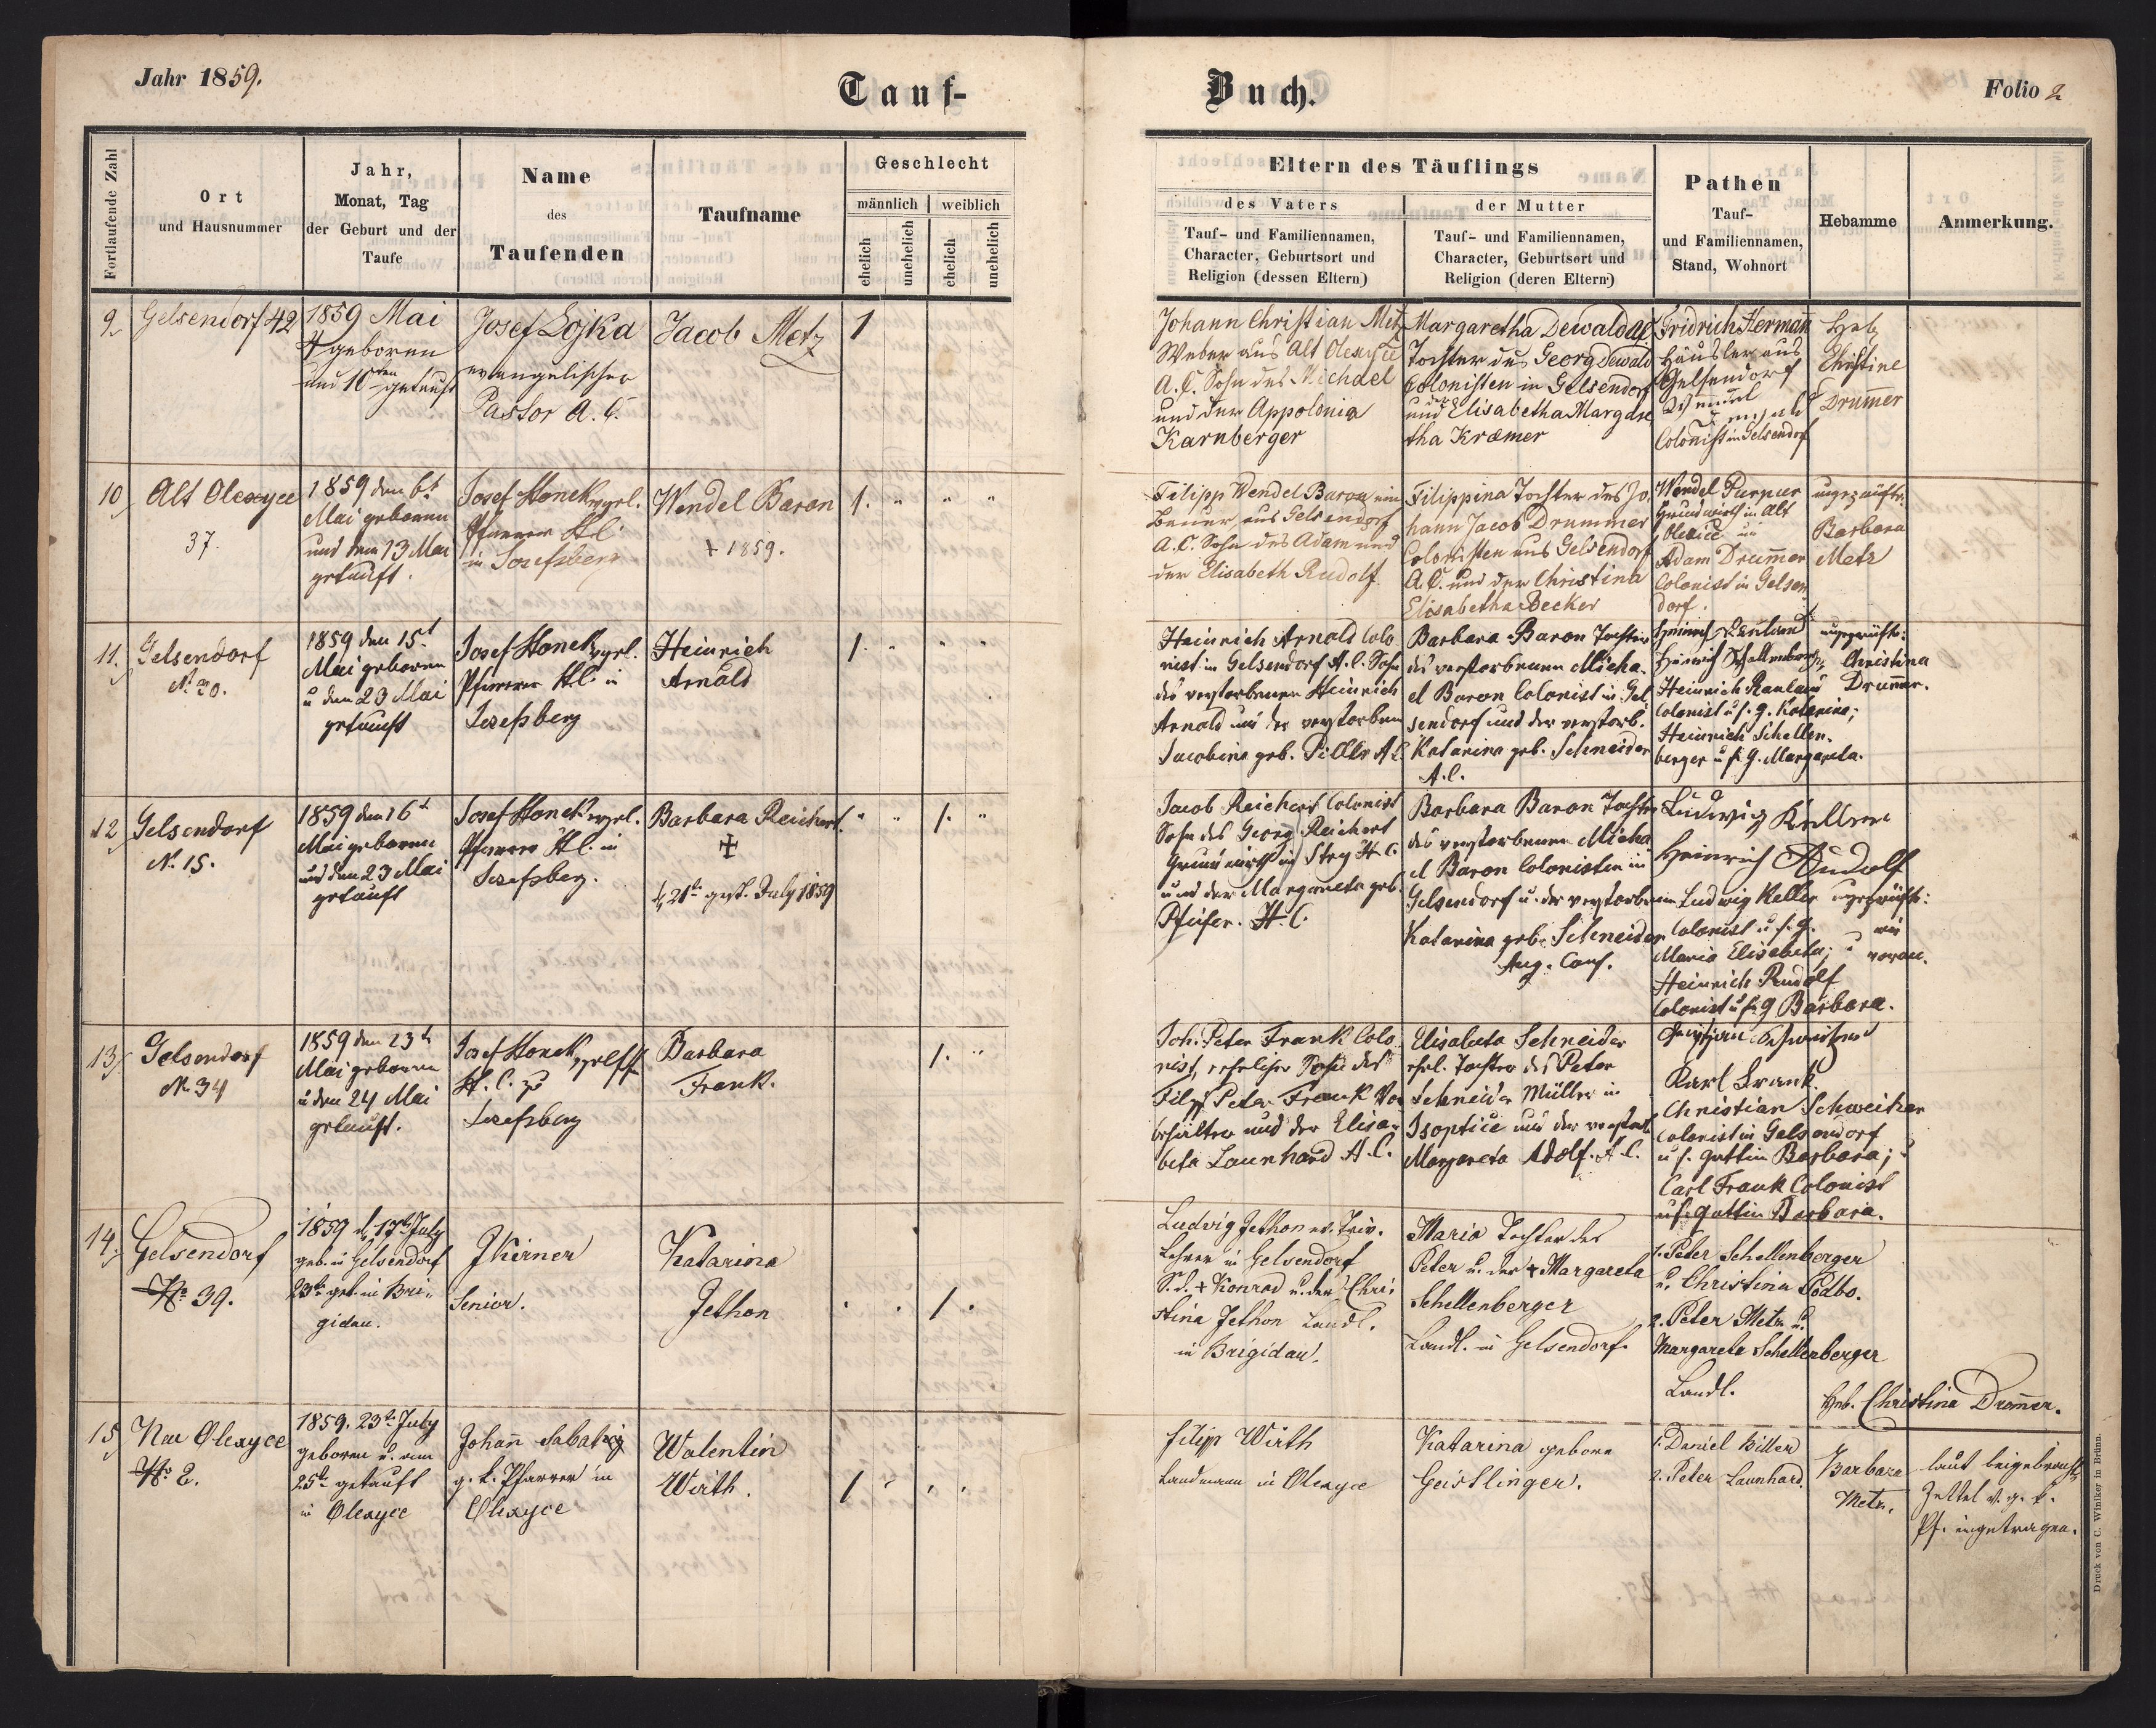 Jahr 1859.
Tauf-
Buch.
Folio 2
Fortlaufende Zahl
Ort
und Hausnummer
Jahr,
Monat, Tag
der Geburt und der
Taufe
Name
des
Taufenden
Taufname
Geschlecht
männlich
weiblich
ehelich
unehelich
ehelich
unehelich
Eltern des Täuflings
des Vaters
Tauf- und Familiennamen,
Character, Geburtsort und
Religion (dessen Eltern)
der Mutter
Tauf- und Familiennamen,
Character, Geburtsort und
Religion (deren Eltern)
Pathen
Tauf-
und Familiennamen,
Stand, Wohnort
Hebamme
Anmerkung.
9
Gelsendorf 42
1859 Mai
geboren
und 10ten getauft
Josef Lojka
evangelischer
Pastor A. C.
Jacob Metz
1
Johann Christian Metz
Weber aus Alt Olexyce
A. C. Sohn des Michael
und der Appolonia
Karnberger
Margaretha Dewald
Tochter des Georg Dewald
Colonisten in Gelsendorf
und Elisabetha Margare
tha Kræmer
Fridrich Hermañ
Häusler aus
Gelsendorf
Colonist in Gelsendorf
Heb
Christine
Drum̃er
10
Alt Olexyce
37.
1859 den 6t
Mai geboren
und den 13 Mai
getauft.
Josef Honek
Pfarrer H. C.
in Josefsberg
Wendel Baron
+ 1859.
1. " " "
Filipp Wendel Baron ein
Bauer, aus Gelsendorf
A. C. Sohn des Adam und
der Elisabeth Rudolf.
Filippina Tochter des Jo.
hann Jacob Drummer
Colonisten aus Gelsendorf
A. C. und der Christina
Elisabetha Becker
Wendel
Grundwirth in Alt
Olexice
Adam Drum̃er
Colonist in Gelsen
dorf.
Barbara
Metz
11.
Gelsendorf
No. 30.
1859 den 15t
Mai geboren
u den 23 Mai
getauft
Josef Honek
Pfarrer H. C. in
Josefsberg
Heinrich
Arnold
1. " " "
Heinrich Arnold Colo
nist in Gelsendorf H. C. Sohn
des verstorbenen Heinrich
Arnold und der verstorbenen
Jacobina geb.
Barbara Baron Tochter
des verstorbenen Micha.
el Baron Colonist in Gel
sendorf und der verstorb.
Katarina geb. Schneider
A. C.
Heinrich
Heinrich Schellenberger
Heinrich
Colonist u. s. g. Katarina;
Heinrich Schellen.
berger u s. g. Margareta.
Christina
Drum̃er.
12
Gelsendorf
No. 15.
1859 den 16t
Mai geboren
und den 23 Mai
getauft
Josef Honek
Pfarrer H. C. in
Josefsberg.
Barbara Reichert.
✠
21t gest. July 1859
" " 1. "
Jacob Reichert Colonist
Sohn des Georg Reichert
Grundwirth in Stry H. C.
und der Margareta geb.
H. C.
Barbara Baron Tochter
des verstorbenen Micha
el Baron Colonisten in
Gelsendorf u. der verstorbenen
Katarina geb. Schneider
Aug. Conf.
Ludwig Keller
Heinrich Rudolf
Ludwig Keller
Colonist u. s. g.
Maria Elisabeta; u
Heinrich Rudolf
Colonist u s. g Barbara.
wie
voran.
13
Gelsendorf
No. 34
1859 den 23t
Mai geboren
u den 24 Mai
getauft.
Josef Honek
H. C. zu
Josefsberg
Barbara
Frank.
1. "
Joh. Peter Frank Colo
nist, ehelicher Sohn des
Filip Peter Frank
und der Elisa
beta Launhard H. C.
Elisabeta Schneider
ehel. Tochter des Peter
Schneider Müller in
Isoptice und der verstorb
Margareta Adolf. A. C.
Christian Schweitzer
Karl Frank.
Christian Schweitzer
Colonist in Gelsendorf
u s. gattin Barbara;
Carl Frank Colonist
u s. gattin Barbara.
14.
Gelsendorf
No 39.
1859 d. 17t July
geb. in Gelsendorf
23t get. in Bri..
gidau.
J Kirner
Senior.
Katarina
Jethon
. . 1 .
Ludvig Jethon ev. Triv.
Lehrer in Gelsendorf
S. d. + Konrad u. der Chri.
stina Jethon Landl.
in Brigidau.
Maria Tochter des
Peter u. der + Margareta
Schellenberger
Landl. in Gelsendorf.
1. Peter Schellenberger
u. Christina
2. Peter Metz u.
Margareta Schellenberger
Landl.
Heb. Christina Drom̃er.
15
Neu Olexyce
No 2.
1859. 23t July
geboren u. am
25t getauft
in Olexyce
Johañ
g. k. Pfarrer in
Olexyce
Walentin
Wirth.
1 " , ,
Filipp Wirth
Landmann in Olexyce
Katarina geborn
Geistlinger.
1. Daniel Biller
2. Peter Launhard.
Barbara
Metz.
laut beigebracht
Zettel v. g. k.
Pf. eingetragen.
Druck von C. Winiker in Brünn.